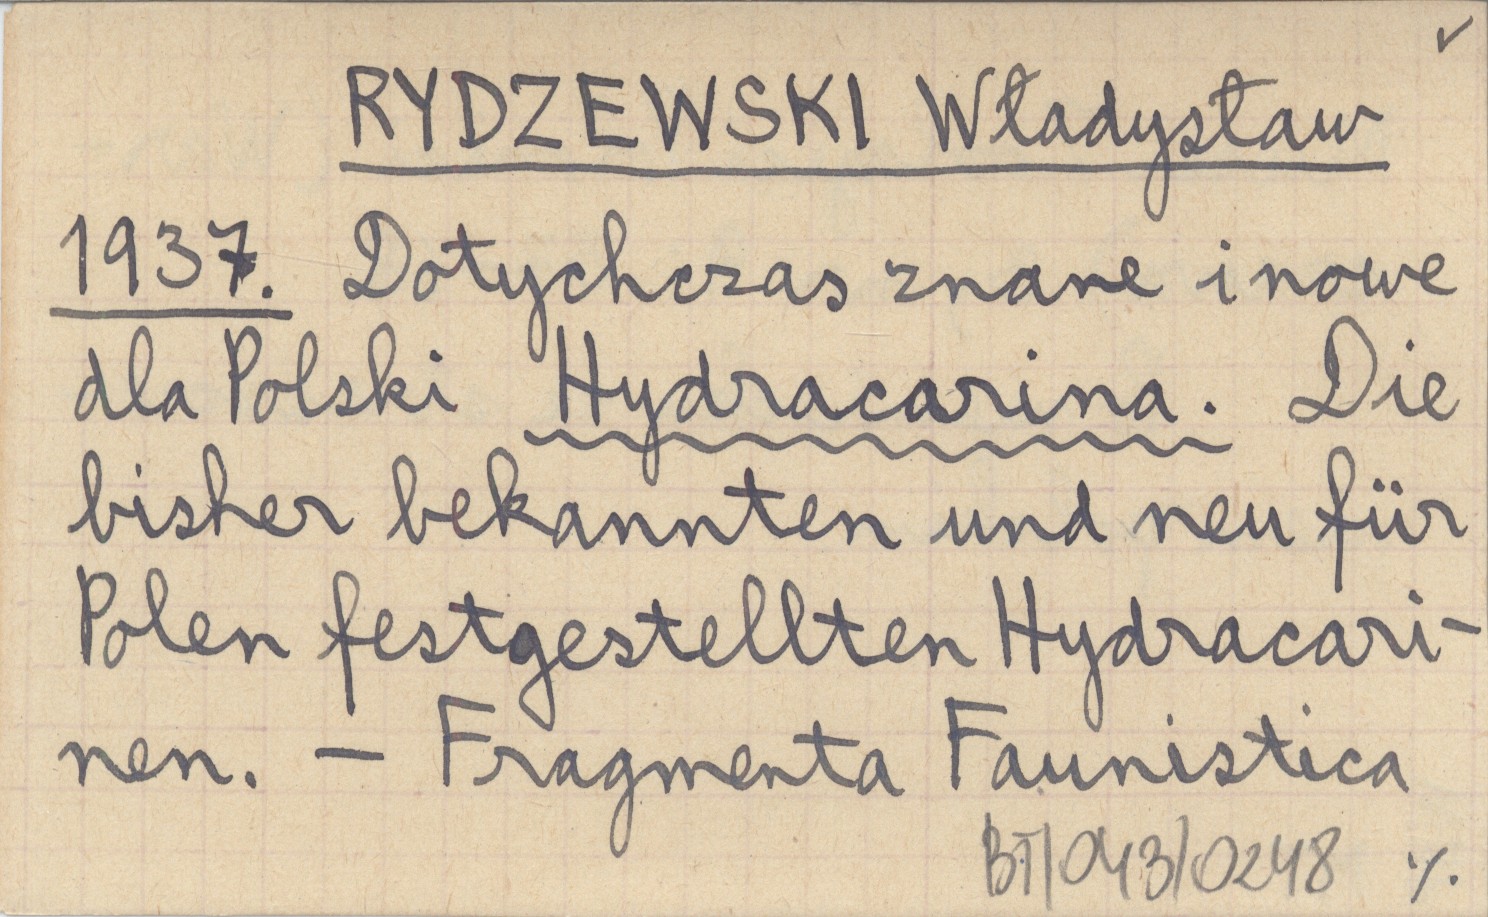 ✓
RYDZEWSKI Władysław
1937. Dotychczas znane i nowe
dla Polski Hydracarina. Die
bisher bekannten und neu für
Polen festgestellten Hydracari-
nen. – Fragmenta Faunistica
BT/043/0248 ·/.